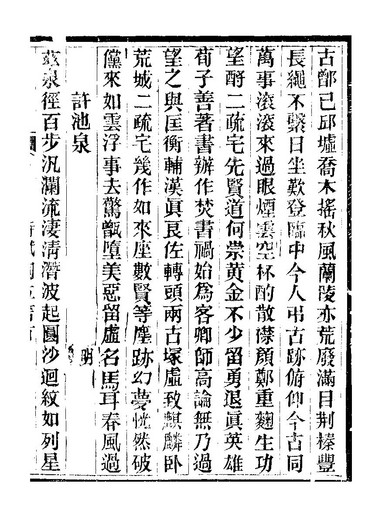 古鄫已邱墟喬木搖秋風蘭陵亦荒廢滿目荆榛豐
長繩不繫日坐歎登臨中今人弔古跡俯仰今古同
萬事滚滚來過眼煙雲空杯酌散襟顏鄭重麴生功
望酹二疏宅先賢道何崇黃金不少留勇退眞英雄
荀子善著書辦作焚書禍始爲客卿師高論無乃過
望之與匡衡輔漢眞良佐轉頭兩古塚虛致麒麟卧
荒城二疏宅幾作如來座數賢等塵跡幻夢恍然破
儻來如雲浮事去驚甑墮美惡留虛名馬耳春風過
許池泉　明
茲泉徑百步汎瀾流淒清潛波起圓沙迴紋如列星